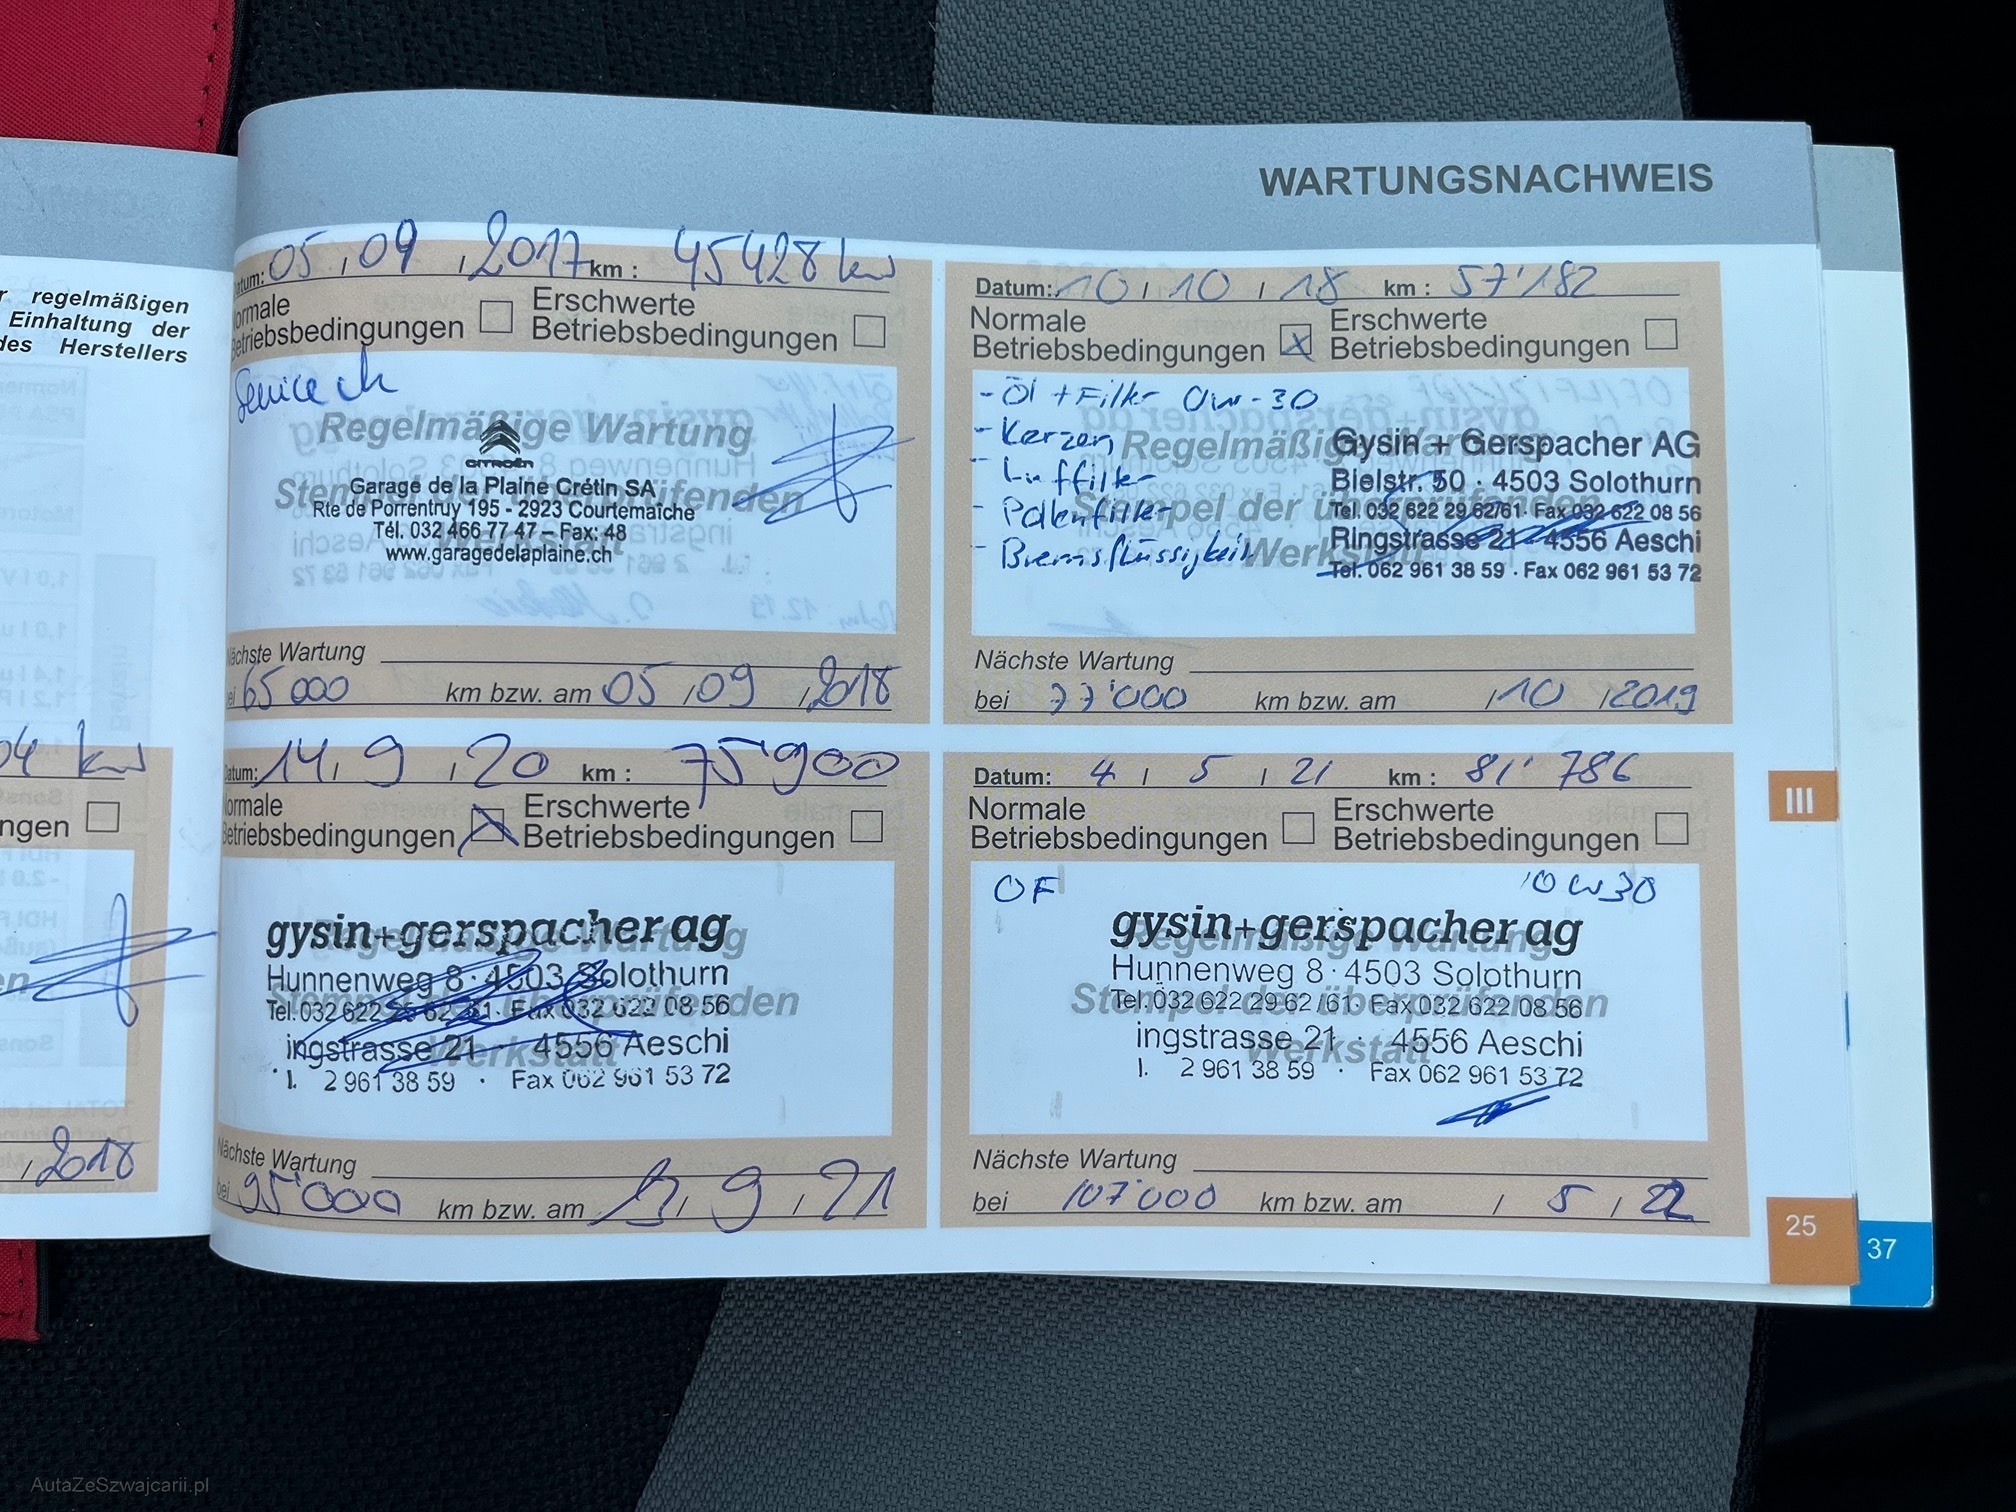 WARTUNGSNACHWEIS
r regelmäßigen
Einhaltung der
des Herstellers
04 km
ngen
en
, 2018
Datum: 05 , 09 , 2017 km : 45428 km
Normale
Betriebsbedingungen
Erschwerte
Betriebsbedingungen
Service ch
Regelmäßige Wartung
Stempel der überprüfenden
Werkstatt
CITROËN
Garage de la Plaine Crétin SA
Rte de Porrentruy 195 - 2923 Courtemaîche
Tél. 032 466 77 47 - Fax: 48
www.garagedelaplaine.ch
Nächste Wartung
bei 65000 km bzw. am 05 , 09 , 2018
Datum: 10 / 10 / 18 km : 57'182
Normale
Betriebsbedingungen x
Erschwerte
Betriebsbedingungen
- Öl + Filter 0W-30
- Kerzen
- Luftfilter
- Pollenfilter
- Bremsflüssigkeit
Regelmäßige Wartung
Stempel der überprüfenden
Werkstatt
Gysin + Gerspacher AG
Bielstr. 50 · 4503 Solothurn
Tel. 032 622 29 62/61 · Fax 032 622 08 56
Ringstrasse 21 · 4556 Aeschi
Tel. 062 961 38 59 · Fax 062 961 53 72
Nächste Wartung
bei 77'000 km bzw. am / 10 / 2019
Datum: 14 , 9 , 20 km : 75'900
Normale
Betriebsbedingungen X
Erschwerte
Betriebsbedingungen
Regelmäßige Wartung
Stempel der überprüfenden
Werkstatt
gysin+gerspacher ag
Hunnenweg 8 · 4503 Solothurn
Tel. 032 622 29 62 /61 · Fax 032 622 08 56
ingstrasse 21 · 4556 Aeschi
l. 2 961 38 59 · Fax 062 961 53 72
Nächste Wartung
bei 95'000 km bzw. am / 9 / 21
Datum: 4 / 5 / 21 km : 81'786
Normale
Betriebsbedingungen
Erschwerte
Betriebsbedingungen
OF 10W30
Regelmäßige Wartung
Stempel der überprüfenden
Werkstatt
gysin+gerspacher ag
Hunnenweg 8 · 4503 Solothurn
Tel. 032 622 29 62 /61 · Fax 032 622 08 56
ingstrasse 21 · 4556 Aeschi
l. 2 961 38 59 · Fax 062 961 53 72
Nächste Wartung
bei 107'000 km bzw. am / 5 / 22
III
25
37
AutaZeSzwajcarii.pl